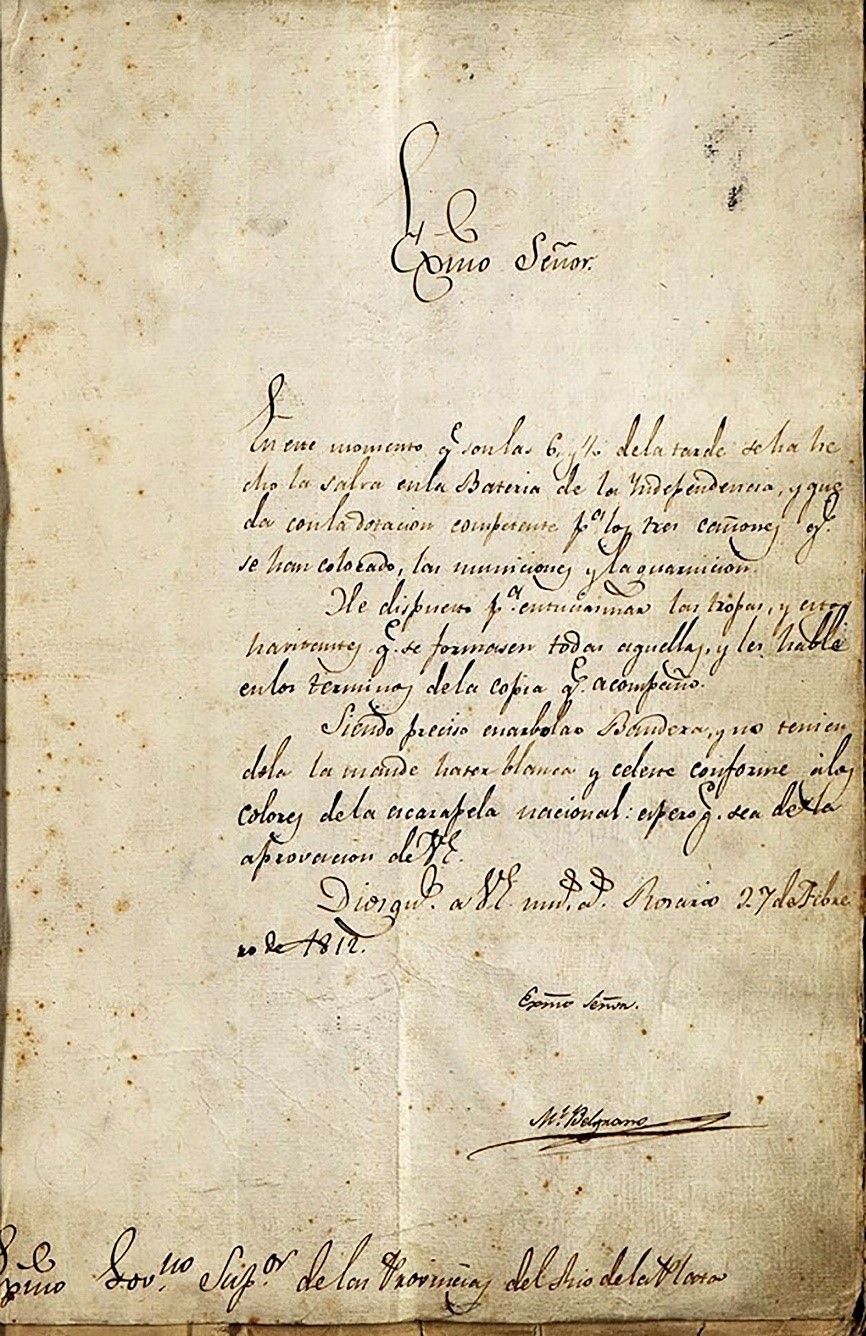 Exmo Señor.
En este momento q.e son las 6 y ½ de la tarde se ha he
cho la salva en la Bateria de la Independencia, y que
da con la dotacion competente p.a los tres cañones q.e
se han colocado, las municiones y la guarnicion.
He dispuesto p.a entusiasmar las tropas, y estos
havitantes q.e se formasen todas aquellas, y les hablé
en los terminos de la copia q.e acompaño.
Siendo preciso enarbolar Bandera, y no tenien
dola la mandé hacer blanca y celeste conforme á los
colores de la escarapela nacional: espero q.e sea de la
aprovacion de VE.
Dios gu.e a VE. m.s a.s Rosario 27 de Febre
ro de 1812.
Exmo Señor.
M.l Belgrano
Exmo Gov.no Sup.or de las Provincias del Rio de la Plata